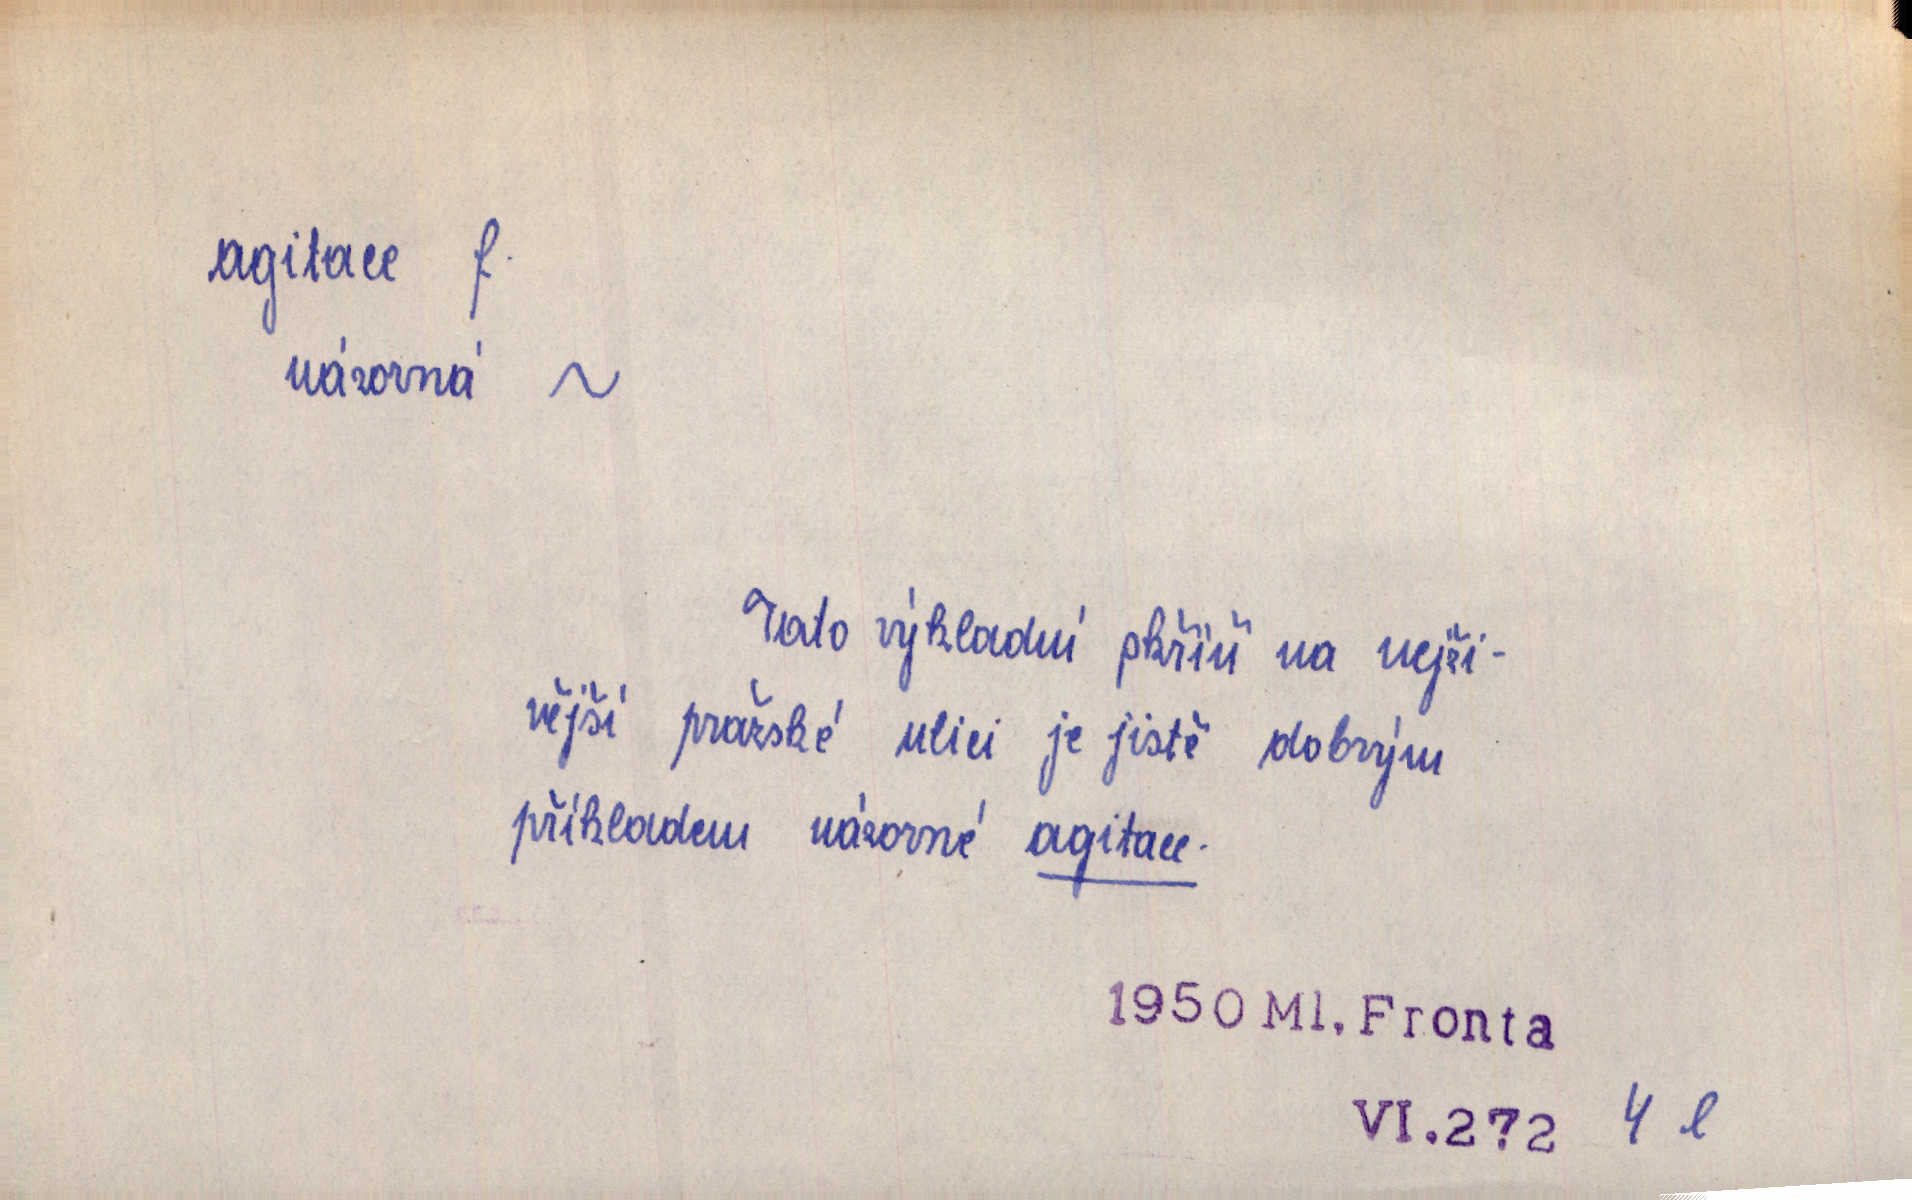 agitace f.
názorná ~
Tato výkladní skříň na nejži-
vější pražské ulici je jistě dobrým
příkladem názorné agitace.
1950 Ml. Fronta
VI.272 4 l